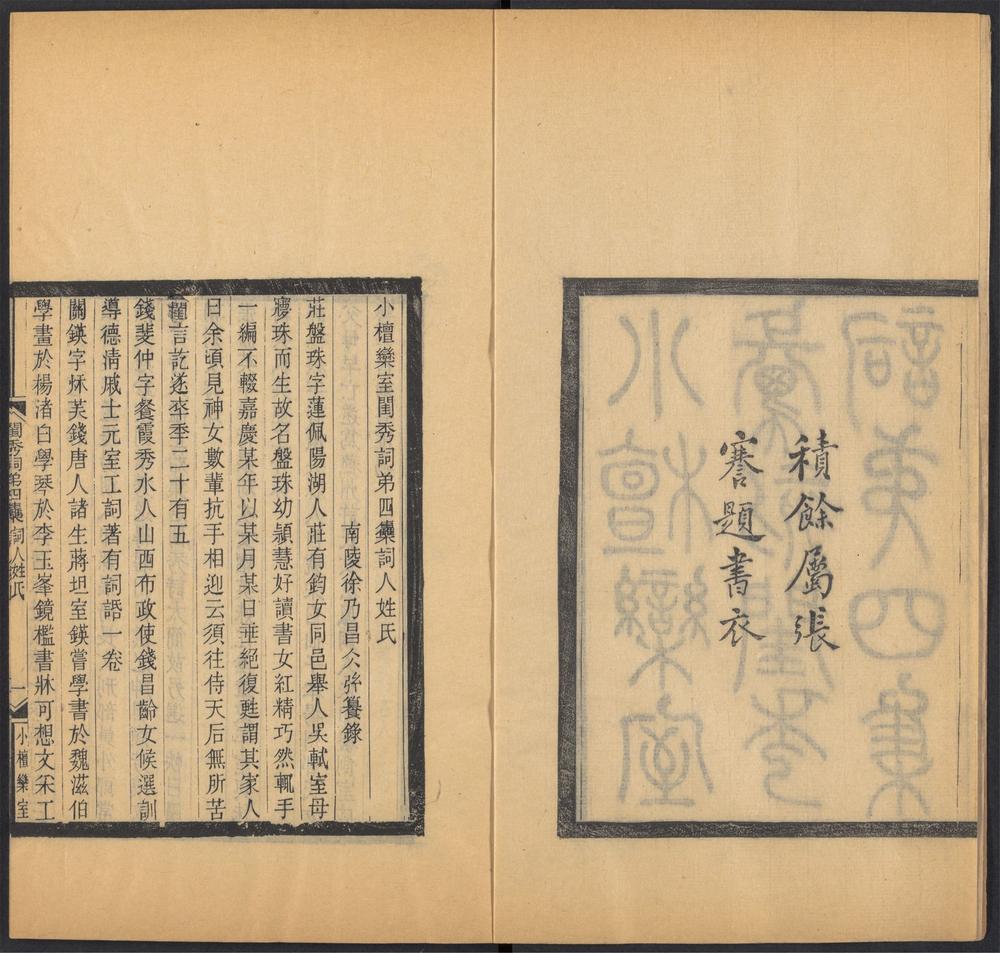 積餘屬張
謇題書衣
小檀欒室閨秀詞弟四集詞人姓氏
南陵徐乃昌仌弆籑錄
莊盤珠字蓮佩陽湖人莊有鈞女同邑舉人吳軾室母
㝱珠而生故名盤珠幼潁慧好讀書女紅精巧然輒手
一編不輟嘉慶某年以某月某日垂絕復甦謂其家人
曰余頃見神女數輩抗手相迎云須往侍天后無所苦
也言訖遂卒季二十有五
錢斐仲字餐霞秀水人山西布政使錢昌齡女候選訓
導德淸戚士元室工詞著有詞語一卷
關鍈字秌芙錢唐人諸生蔣坦室鍈嘗學書於魏滋伯
學畫於楊渚白學琴於李玉峯鏡檻書牀可想文采工
閨秀詞弟四集 詞人姓氏
一
小檀欒室